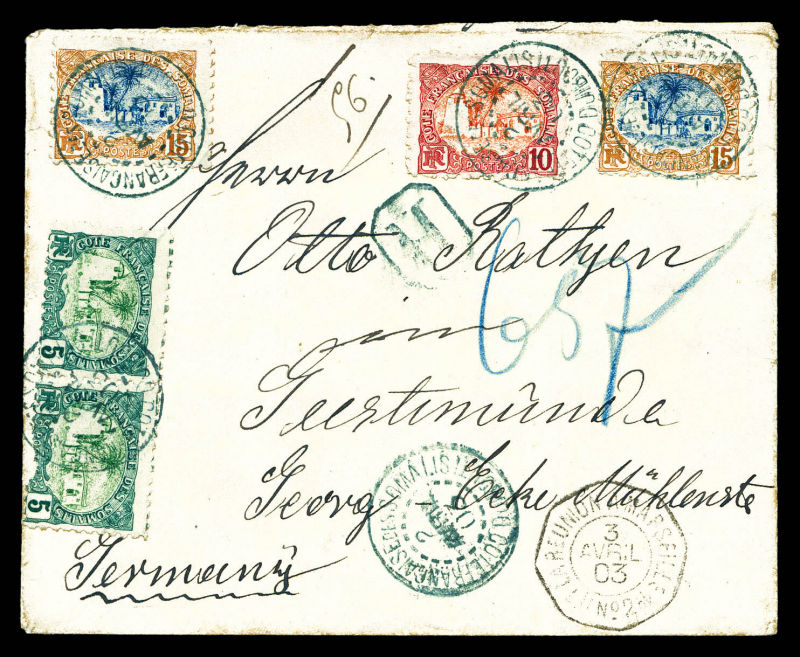 COTE FRANÇAISE DES SOMALIS
RF POSTES 15
COTE FRANÇAISE DES SOMALIS
RF POSTES 10
COTE FRANÇAISE DES SOMALIS
RF POSTES 15
56
Herrn
R
Otto Rathjen
657
in
COTE FRANÇAISE DES SOMALIS
RF POSTES 5
COTE FRANÇAISE DES SOMALIS
RF POSTES 5
Geestemünde
Georg Ecke Mühlenstr
Germany
DJIBOUTI COTE FRANÇAISE DES SOMALIS
2 AVRIL 03
LA REUNION A MARSEILLE
3
AVRIL
03
L.U Nº2